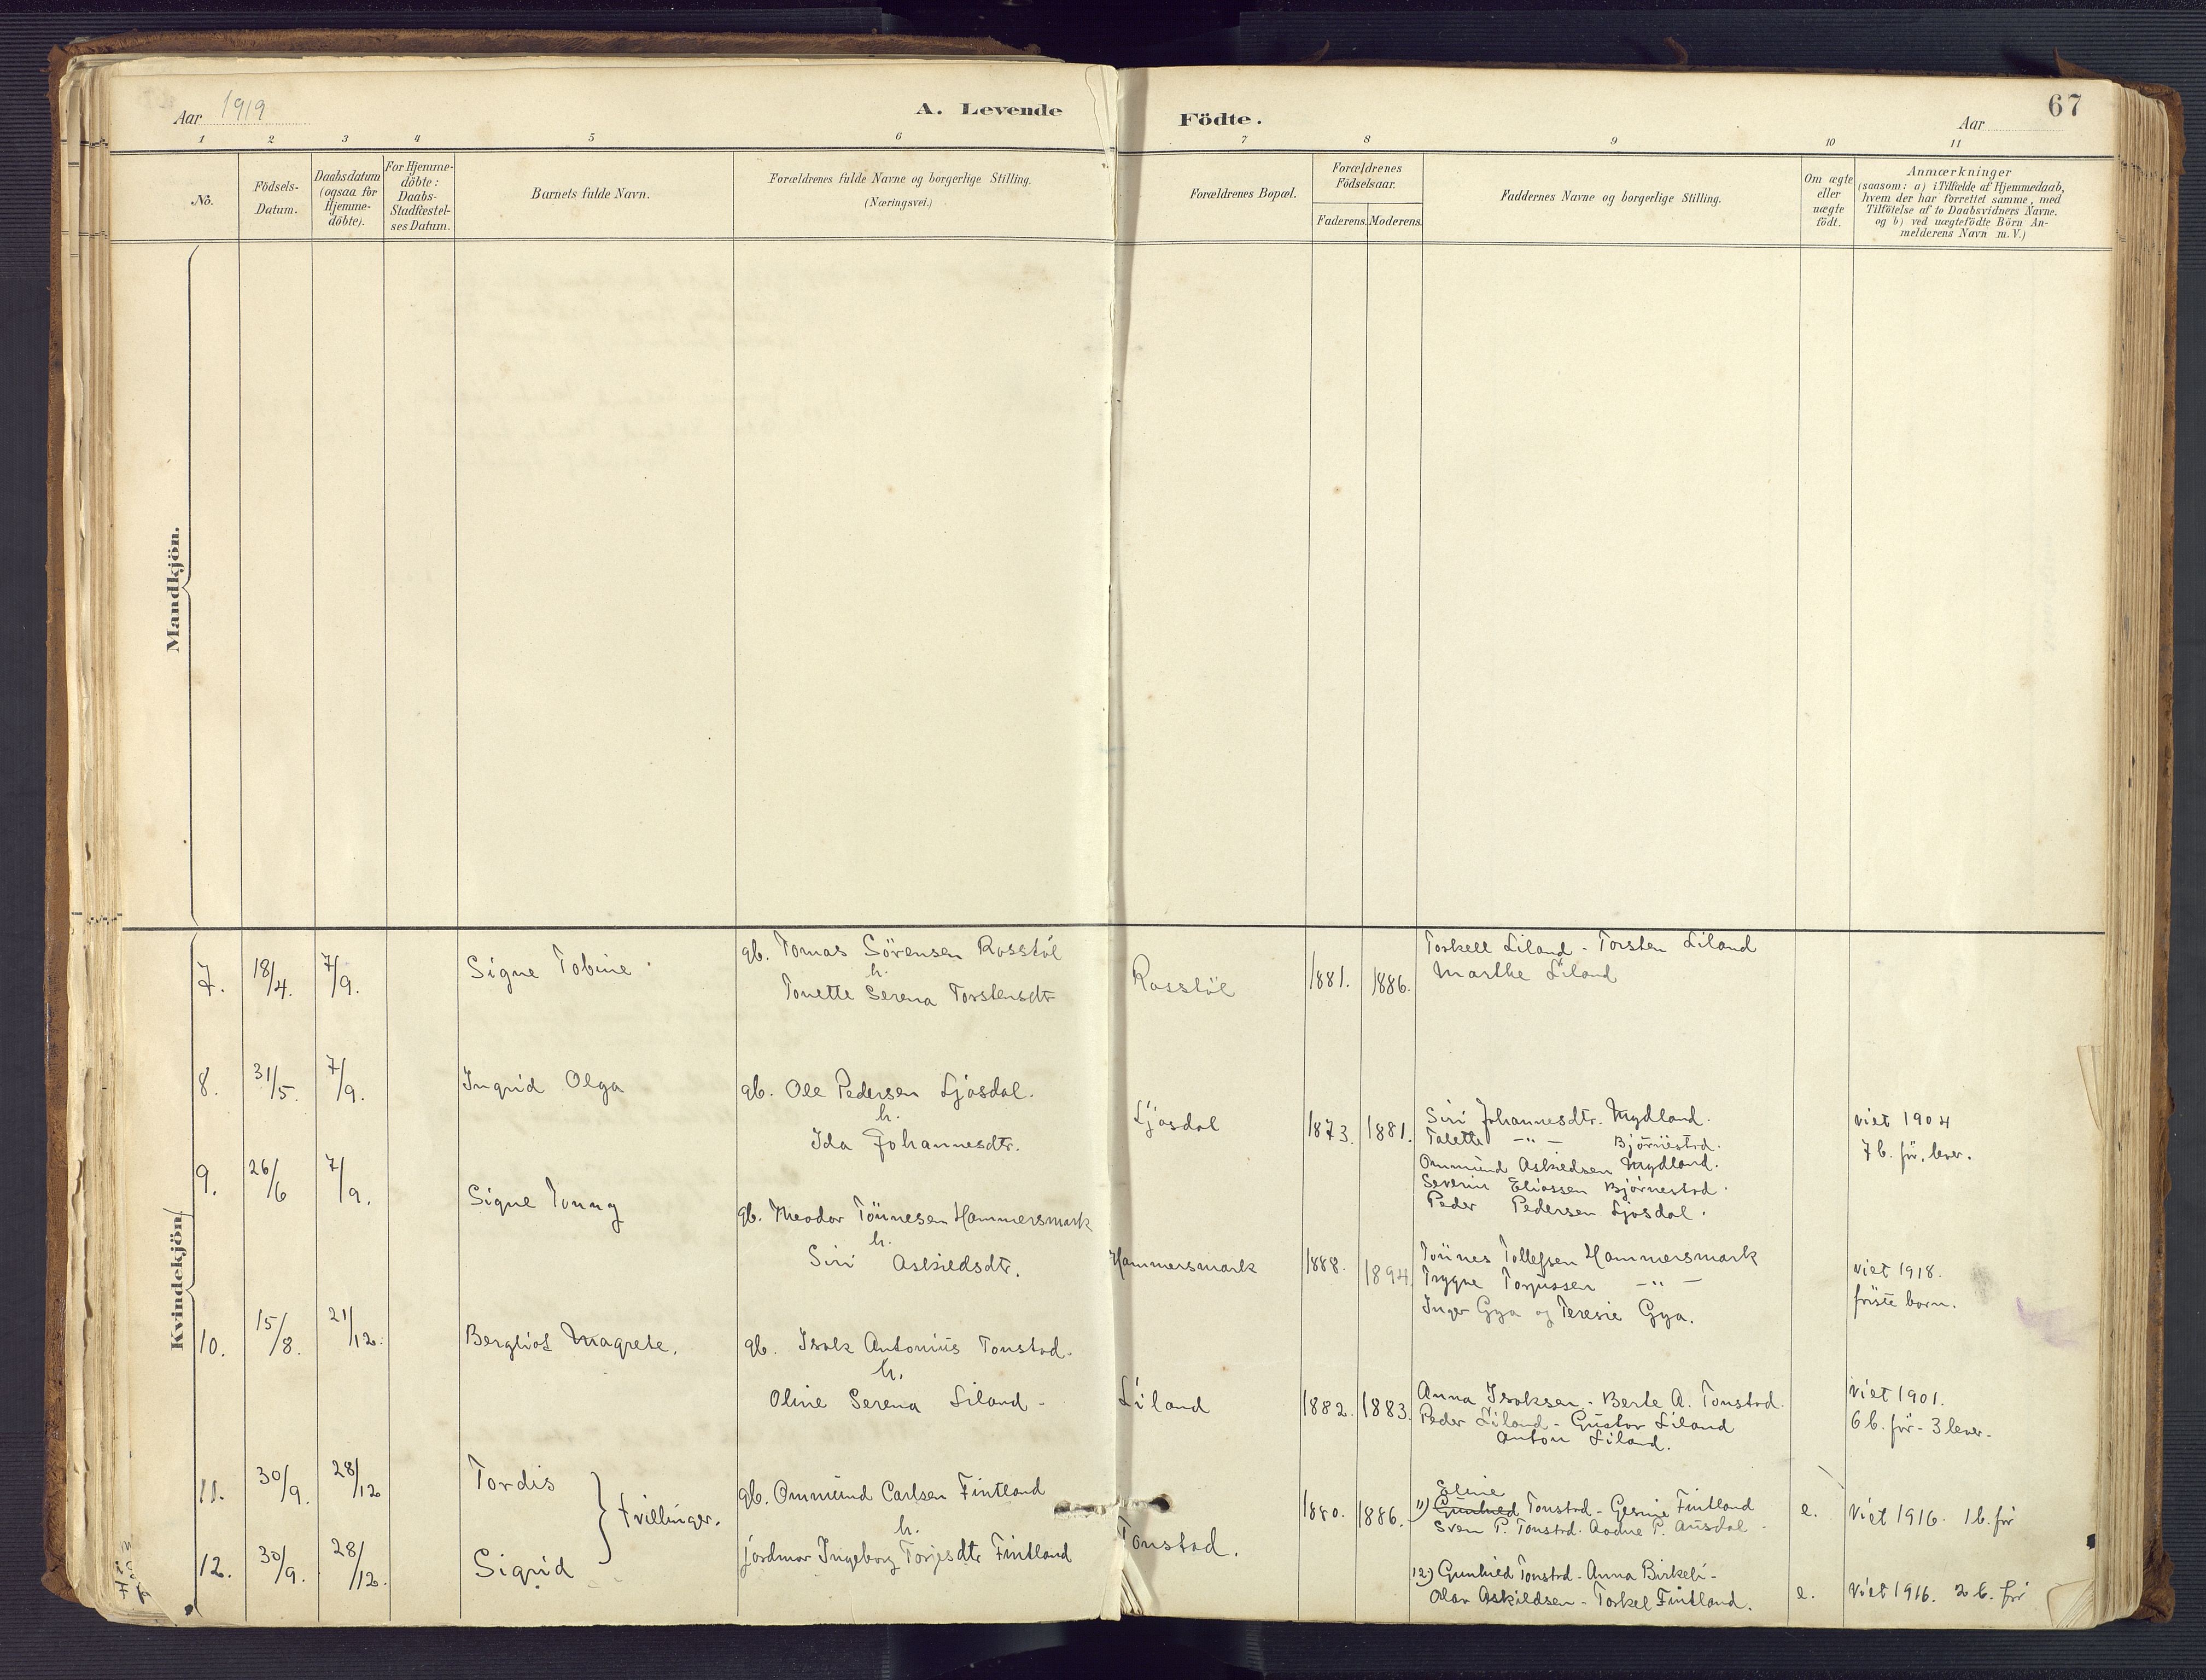 Aar 1919
A. Levende Födte.
Aar
67
1 2 3 4 5 6 7 8 9 10 11
No.
Födsels-
Datum.
Daabsdatum
(ogsaa for
Hjemme-
döbte).
For Hjemme-
döbte:
Daabs-
Stadfæstel-
ses Datum.
Barnets fulde Navn.
Forældrenes fulde Navne og borgerlige Stilling.
(Næringsvei.)
Forældrenes Bopæl.
Forældrenes
Födselsaar.
Faderens. Moderens.
Faddernes Navne og borgerlige Stilling.
Om ægte
eller
uægte
födt.
Anmærkninger
(saasom: a) i Tilfælde af Hjemmedaab,
hvem der har forrettet samme, med
Tilföielse af to Daabsvidners Navne,
og b) ved uægtefödte Börn An-
melderens Navn m. V.)
Mandkjön.
Kvindekjön
7. 18/4. 7/9. Signe Tobine
gb. Tomas Sörensen Rosstöl
h.
Tonette Serena Torstensdtr
Rosstöl 1881. 1886.
Torkell Liland - Torsten Liland
Marthe Liland
8. 31/5. 7/9. Ingrid Olga
gb. Ole Pedersen Ljosdal.
h.
Ida Johannesdtr.
Ljosdal 1873. 1881.
Siri Johannesdtr. Mydland.
Talette -"- Björnestad.
Ommund Askiedsen Mydland.
Severin Eliassen Björnestad.
Peder Pedersen Ljosdal.
viet 1904
7 b. før, lever.
9. 26/6 7/9. Signe Tonny
gb. Theodor Tönnesen Hammersmark
h.
Siri Askiedsdtr.
Hammersmark 1888. 1894.
Tönnes Tollefsen Hammersmark
Trygve Torjussen -"-
Inger Gya og Teresie Gya.
viet 1918.
første barn.
10. 15/8. 21/12. Bergliot Magrete.
gb. Isak Antonius Tonstad.
h.
Oline Serena Liland -
Liland 1882. 1883.
Anna Isaksen - Berte A. Tonstad.
Peder Liland - Gustav Liland
Anton Liland.
viet 1901.
6 b. før - 3 lever.
11. 30/9. 28/12 Tordis
Tvillinger.
gb. Ommund Carlsen Fintland
h.
jordmor Ingeborg Torjesdtr Fintland
Tonstad. 1880. 1886.
Eline
11) Gunhild Tonstad - Gesine Fintland
Sven P. Tonstad. Aadne P. Ousdal.
e. viet 1916. 1 b. før
12. 30/9. 28/12. Sigrid
12) Gunhild Tonstad - Anna Birkeli -
Olav Askildsen - Torkel Fintland.
e. viet 1916. 2 b. før